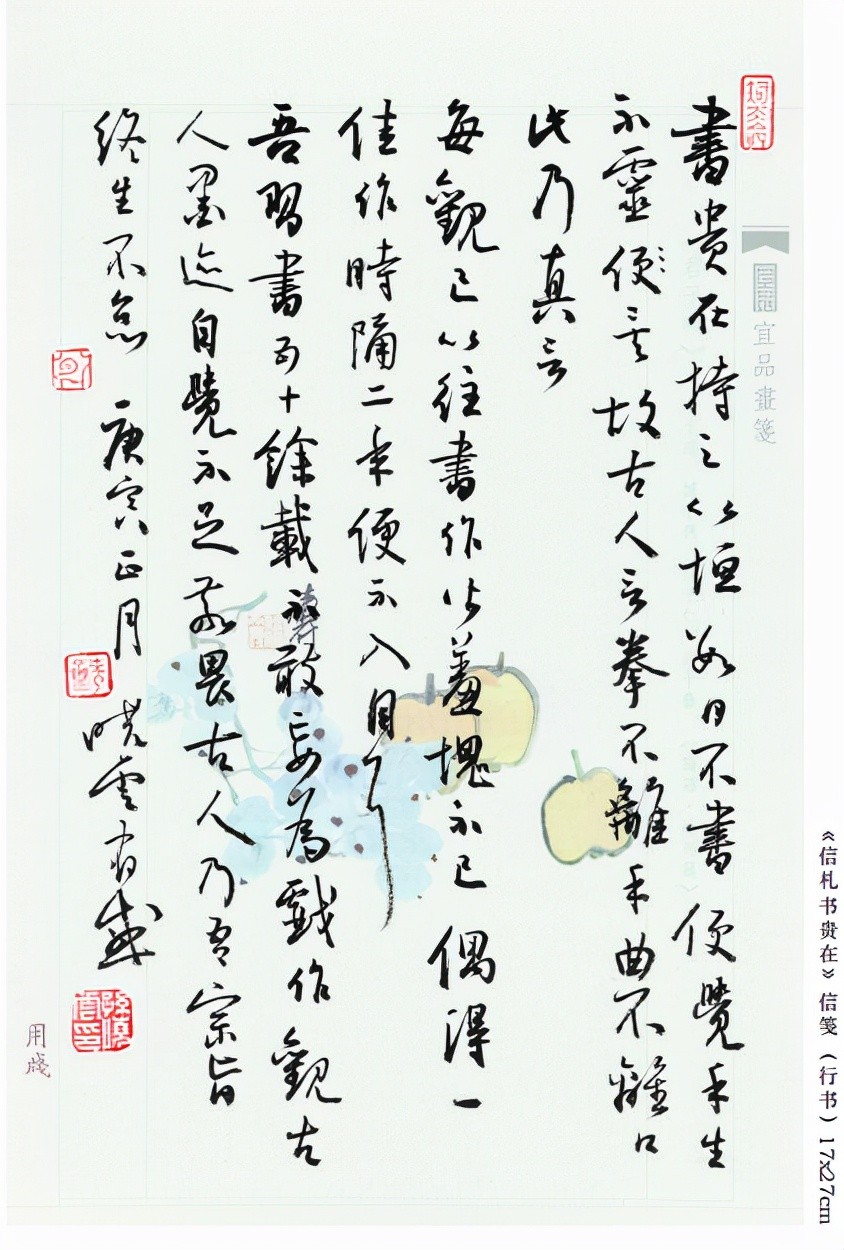 書貴在持之以恒數日不書便覺手生
不靈便之言故古人言拳不離手曲不離口
此乃真言
每觀已以往書作皆羞愧不已偶得一
佳作時隔二年便不入目了
吾習書五十餘載不敢妄為戲作觀古
人墨迹自覺不足敬畏古人乃吾宗旨
終生不怠 庚寅正月 曉雲有感
宜品畫箋
用箋
《信札书贵在》信笺(行书)17x27cm